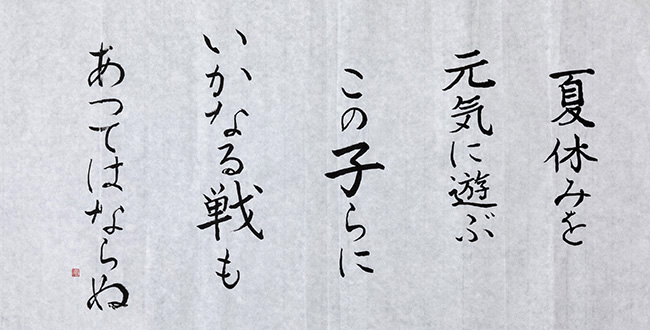 夏休みを
元気に遊ぶ
この子らに
いかなる戦も
あつてはならぬ